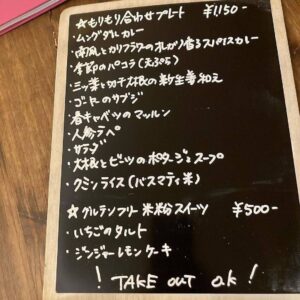 ☆もりもり合わせプレート ¥1,150-
・ムングダルカレー
・南風とカリフラワーのオレガノ香るスパイスカレー
・季節のパコラ(天ぷら)
・三ッ葉と切干大根の和え
・ゴーヤのサブジ
・春キャベツのマッルン
・人参ラペ
・サラダ
・大根とビーツのポタージュスープ
・クミンライス(バスマティ米)
☆グルテンフリー米粉スイーツ ¥500-
・いちごのタルト
・ジンジャーレモンケーキ
! TAKE OUT ok !